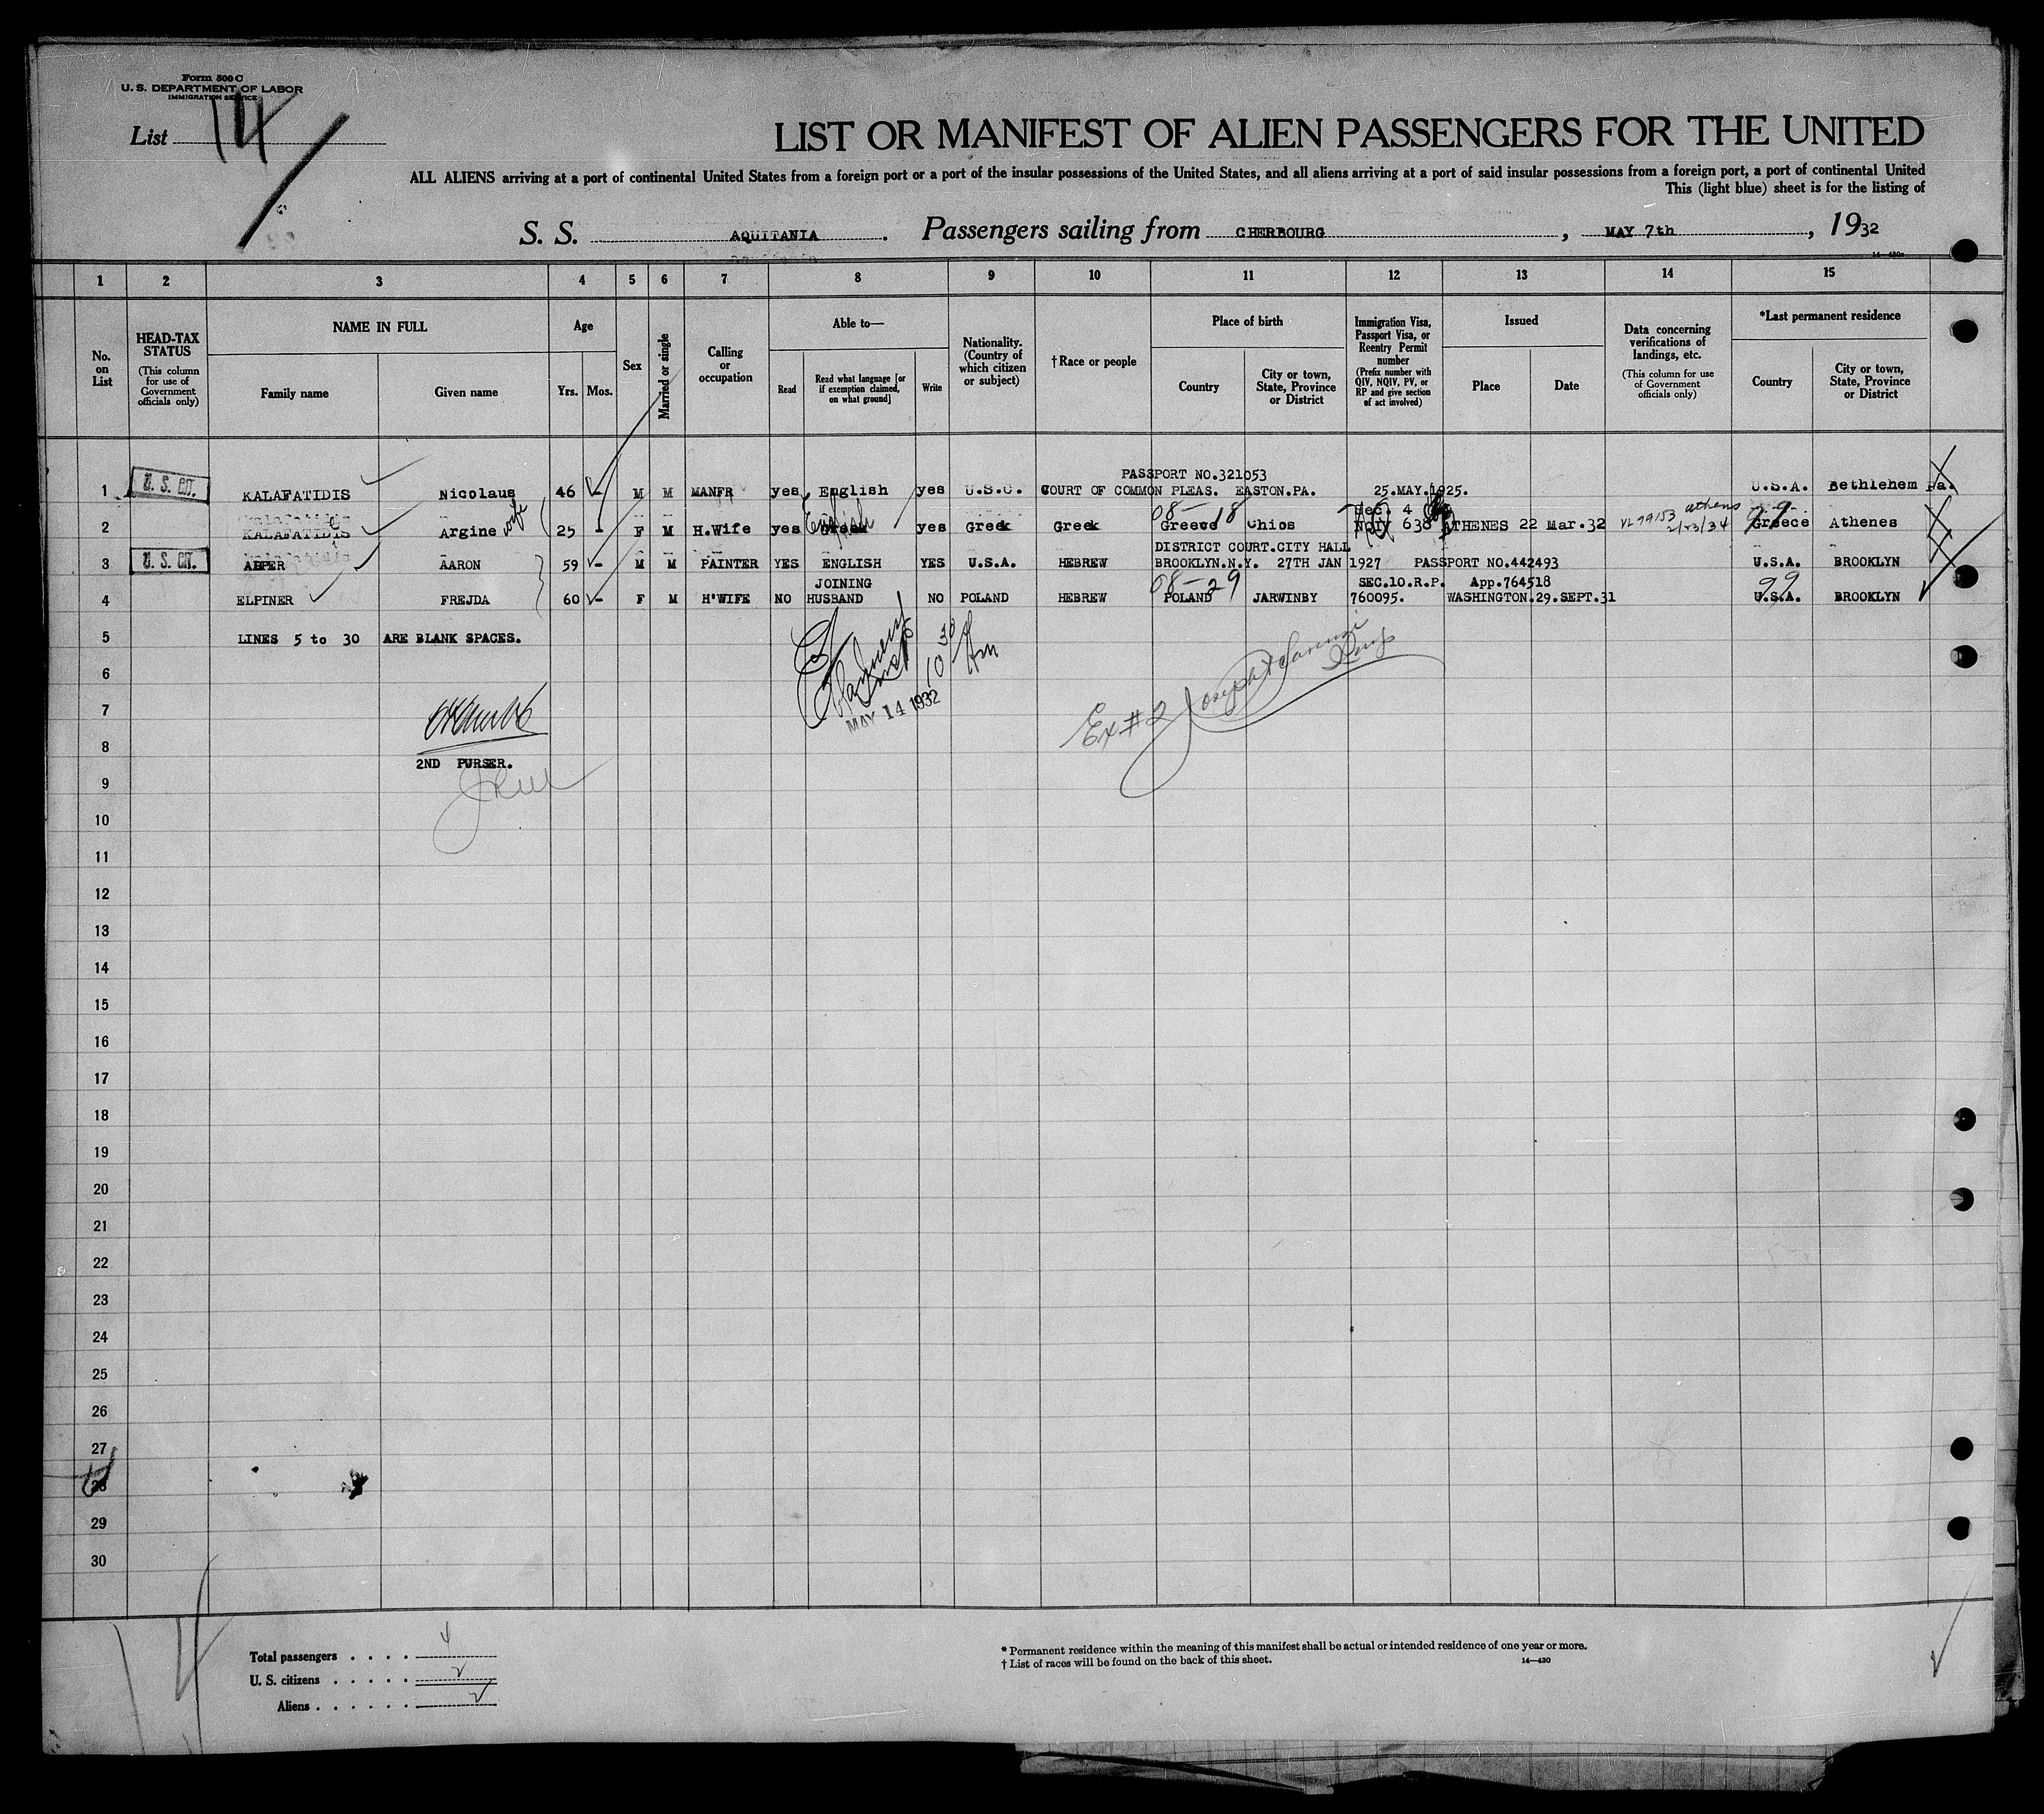 Form 500 C
U. S. DEPARTMENT OF LABOR
IMMIGRATION SERVICE
List 14
LIST OR MANIFEST OF ALIEN PASSENGERS FOR THE UNITED
ALL ALIENS arriving at a port of continental United States from a foreign port or a port of the insular possessions of the United States, and all aliens arriving at a port of said insular possessions from a foreign port, a port of continental United
This (light blue) sheet is for the listing of
S. S. AQUITANIA. Passengers sailing from CHERBOURG, MAY 7th, 1932
14-430a
1 2 3 4 5 6 7 8 9 10 11 12 13 14 15
No. on List
HEAD-TAX STATUS (This column for use of Government officials only)
NAME IN FULL
Family name
Given name
Age
Yrs. Mos.
Sex
Married or single
Calling or occupation
Able to—
Read
Read what language [or if exemption claimed, on what ground]
Write
Nationality. (Country of which citizen or subject)
†Race or people
Place of birth
Country
City or town, State, Province or District
Immigration Visa, Passport Visa, or Reentry Permit number (Prefix number with QIV, NQIV, PV, or RP and give section of act involved)
Issued
Place
Date
Data concerning verifications of landings, etc. (This column for use of Government officials only)
*Last permanent residence
Country
City or town, State, Province or District
PASSPORT NO.321053
1 U. S. CIT. KALAFATIDIS Nicolaus 46 - M M MANFR yes English yes U.S.C. COURT OF COMMON PLEAS. EASTON.PA. 25.MAY.1925. U.S.A. Bethlehem Pa.
08-18 Sec. 4
2 KALAFATIDIS Argine wife 25 - F M H.Wife yes English yes Greek Greek Greece Chios NQIV 638 ATHENES 22 Mar.32 VL 99153 athens 2/23/34 99 Greece Athenes
DISTRICT COURT.CITY HALL
3 U. S. CIT. AARON 59 - M M PAINTER YES ENGLISH YES U.S.A. HEBREW BROOKLYN.N.Y. 27TH JAN 1927 PASSPORT NO.442493 U.S.A. BROOKLYN
JOINING 08-29 SEC.10.R.P. App.764518 99
4 ELPINER FREJDA 60 - F M H'WIFE NO HUSBAND NO POLAND HEBREW POLAND JARWINBY 760095. WASHINGTON.29.SEPT.31 U.S.A. BROOKLYN
5 LINES 5 to 30 ARE BLANK SPACES.
6
7 MAY 14 1932 10 30 Am Ex #2
8
2ND PURSER.
9
10
11
12
13
14
15
16
17
18
19
20
21
22
23
24
25
26
27
28
29
30
Total passengers . . . . 4
U. S. citizens . . . . . 2
Aliens . . . . . . 2
* Permanent residence within the meaning of this manifest shall be actual or intended residence of one year or more.
† List of races will be found on the back of this sheet.
14—430